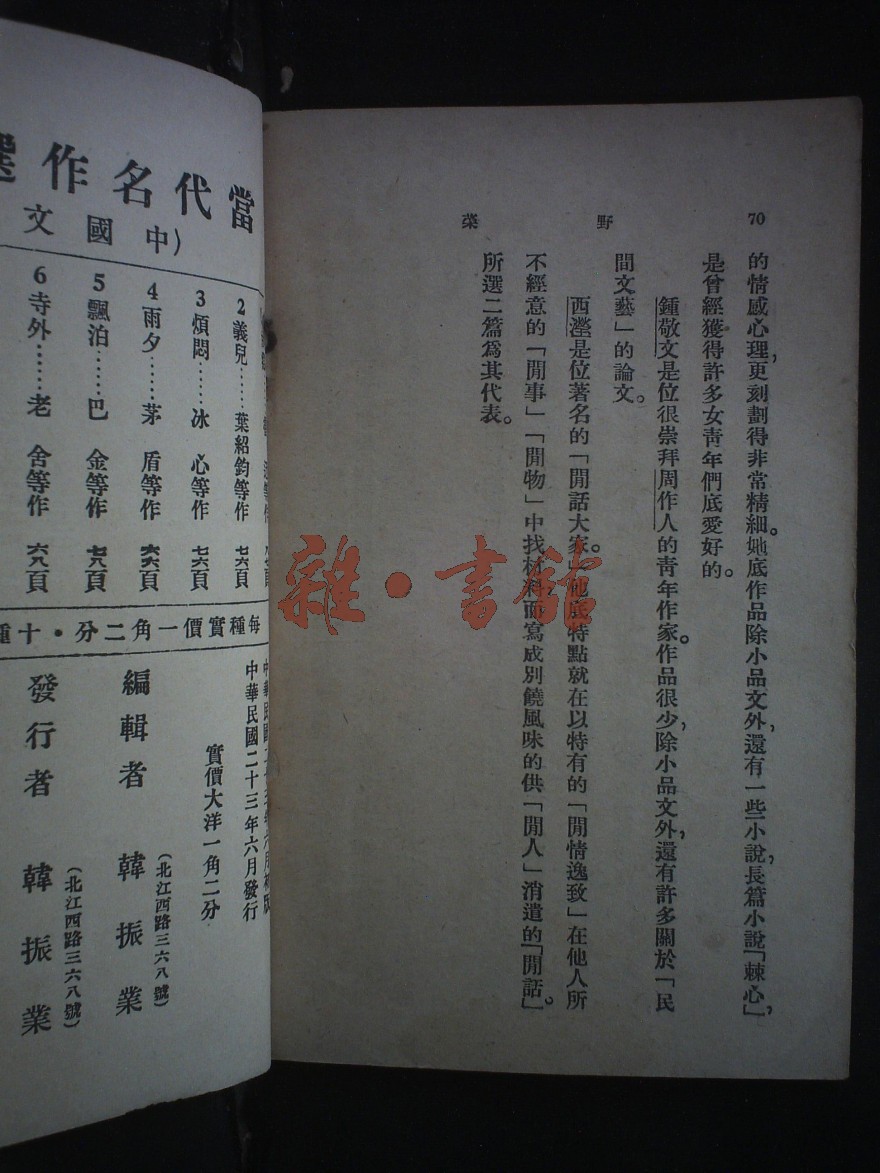 70
野
菜
的情感心理，更刻劃得非常精細。她底作品除小品文外，還有一些小說，長篇小說「棘心」，
是曾經獲得許多女青年們底愛好的。
鍾敬文是位很崇拜周作人的青年作家。作品很少，除小品文外，還有許多關於「民
間文藝」的論文。
西瀅是位著名的「閒話大家。」他底特點就在以特有的「閒情逸致」在他人所
不經意的「閒事」「閒物」中找材料，而寫成別饒風味的供「閒人」消遣的「閒話」。
所選二篇爲其代表。
當代名作選
（中國文
2義兒……葉紹鈞等作 七六頁
3煩悶……冰心等作 七六頁
4雨夕……茅盾等作 六六頁
5飄泊……巴金等作 七八頁
6寺外……老舍等作 六八頁
每種實價一角二分·十種
中華民國二十三年六月發行
實價大洋一角二分
編輯者 韓振業
（北江西路三六八號）
發行者 韓振業
（北江西路三六八號）
雜·書館